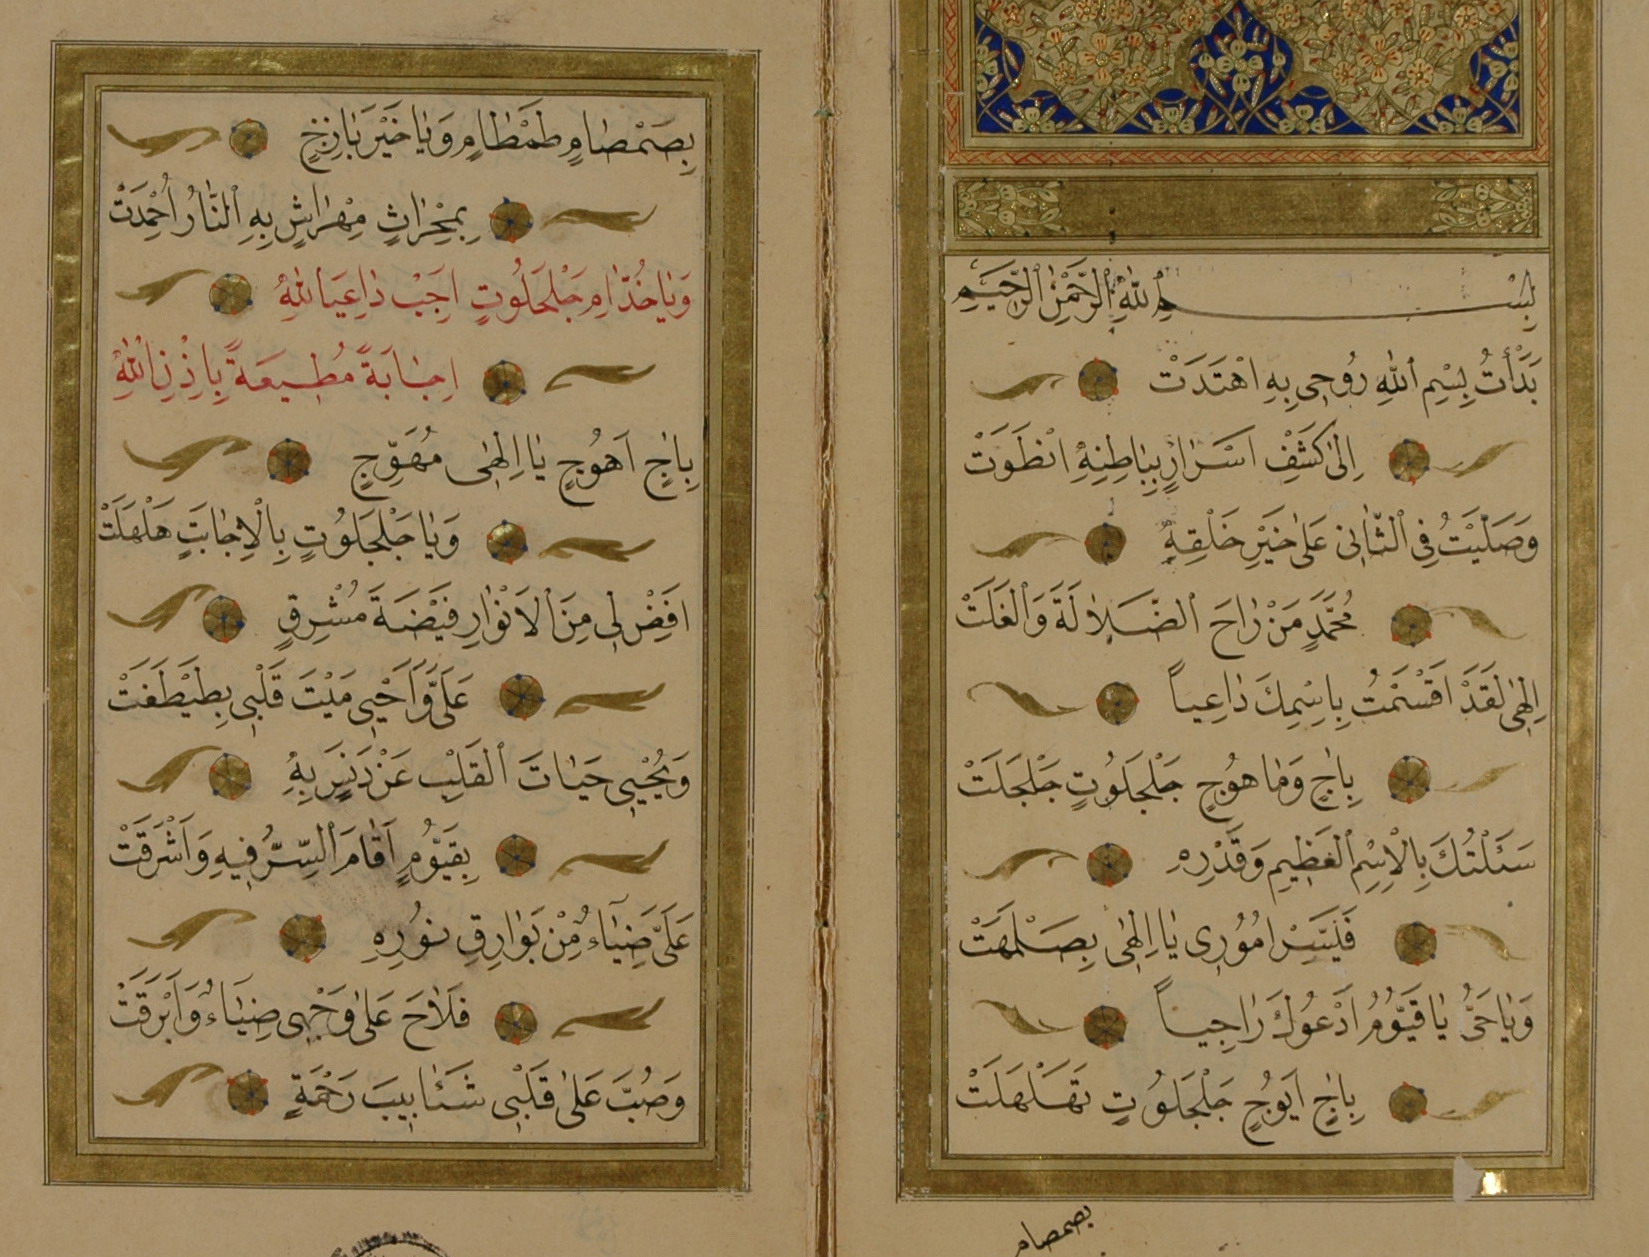 بِسْمِ اللّٰهِ الرَّحْمٰنِ الرَّحِيمِ
بَدَأْتُ بِسْمِ اللّٰهِ رُوحِى بِهِ اهْتَدَتْ
اِلٰى كَشْفِ اَسْرَارٍ بِبَاطِنِهِ انْطَوَتْ
وَصَلَّيْتُ فِى الثَّانِى عَلٰى خَيْرِ خَلْقِهِ
مُحَمَّدٍ مَنْ زَاحَ الضَّلَالَةَ وَالْغَلَتْ
اِلٰهِى لَقَدْ اَقْسَمْتُ بِاسْمِكَ دَاعِياً
بِاٰجٍ وَمَا هُوجٍ جَلْجَلُوتٍ جَلْجَلَتْ
سَئَلْتُكَ بِالْاِسْمِ الْعَظِيمِ وَقَدْرِهِ
فَيَسِّرْ اُمُورِى يَا اِلٰهِى بِصَلْمَهَتْ
وَيَا حَىُّ يَا قَيُّومُ اَدْعُوكَ رَاجِياً
بِاٰجٍ اَيُوجٍ جَلْجَلُوتٍ تَهَلْهَلَتْ
بصمصام
بِصَمْصَامٍ طَمْطَامٍ وَيَا خَيْرَ بَازِخٍ
بِمِحْرَاثٍ مِهْرَاشٍ بِهِ النَّارُ اُخْمِدَتْ
وَيَا خُدَّامَ جَلْجَلُوتٍ اَجِبْ دَاعِىَ اللّٰهِ
اِجَابَةً مُطِيعَةً بِاِذْنِ اللّٰهِ
بِاٰجٍ اَهُوجٍ يَا اِلٰهِى مُهَوِّجٍ
وَيَا جَلْجَلُوتٍ بِالْاِجَابَتِ هَلْهَلَتْ
اَفِضْ لِى مِنَ الْاَنْوَارِ فَيْضَةَ مُشْرِقٍ
عَلَىَّ وَاَحْيِى مَيْتَ قَلْبِى بِطَيْطَغَتْ
وَيُحْيِى حَيَاتَ الْقَلْبِ عَنْ دَنَسٍ بِهِ
بِقَيُّومٍ اَقَامَ السِّرُّ فِيهِ وَاَشْرَقَتْ
عَلَىَّ ضِيَاءٌ مِنْ بَوَارِقِ نُورِهِ
فَلَاحَ عَلٰى وَجْهِى ضِيَاءٌ وَاَبْرَقَتْ
وَصُبَّ عَلٰى قَلْبِى شَئَابِيبَ رَحْمَةٍ